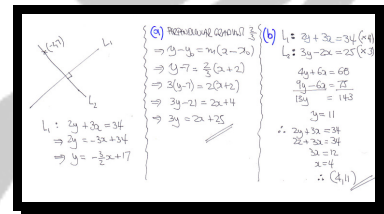 (-2,7)
L₁
L₂
L₁ : 2y + 3x = 34
⇒ 2y = -3x + 34
⇒ y = -3/2x + 17
(a) PERPENDICULAR GRADIENT 2/3
⇒ y - y₀ = m(x - x₀)
⇒ y - 7 = 2/3(x + 2)
⇒ 3(y - 7) = 2(x + 2)
⇒ 3y - 21 = 2x + 4
⇒ 3y = 2x + 25
(b) L₁: 2y + 3x = 34 (×2)
L₂: 3y - 2x = 25 (×3)
4y + 6x = 68
9y - 6x = 75
13y = 143
y = 11
∴ 2y + 3x = 34
22 + 3x = 34
3x = 12
x = 4
∴ (4,11)